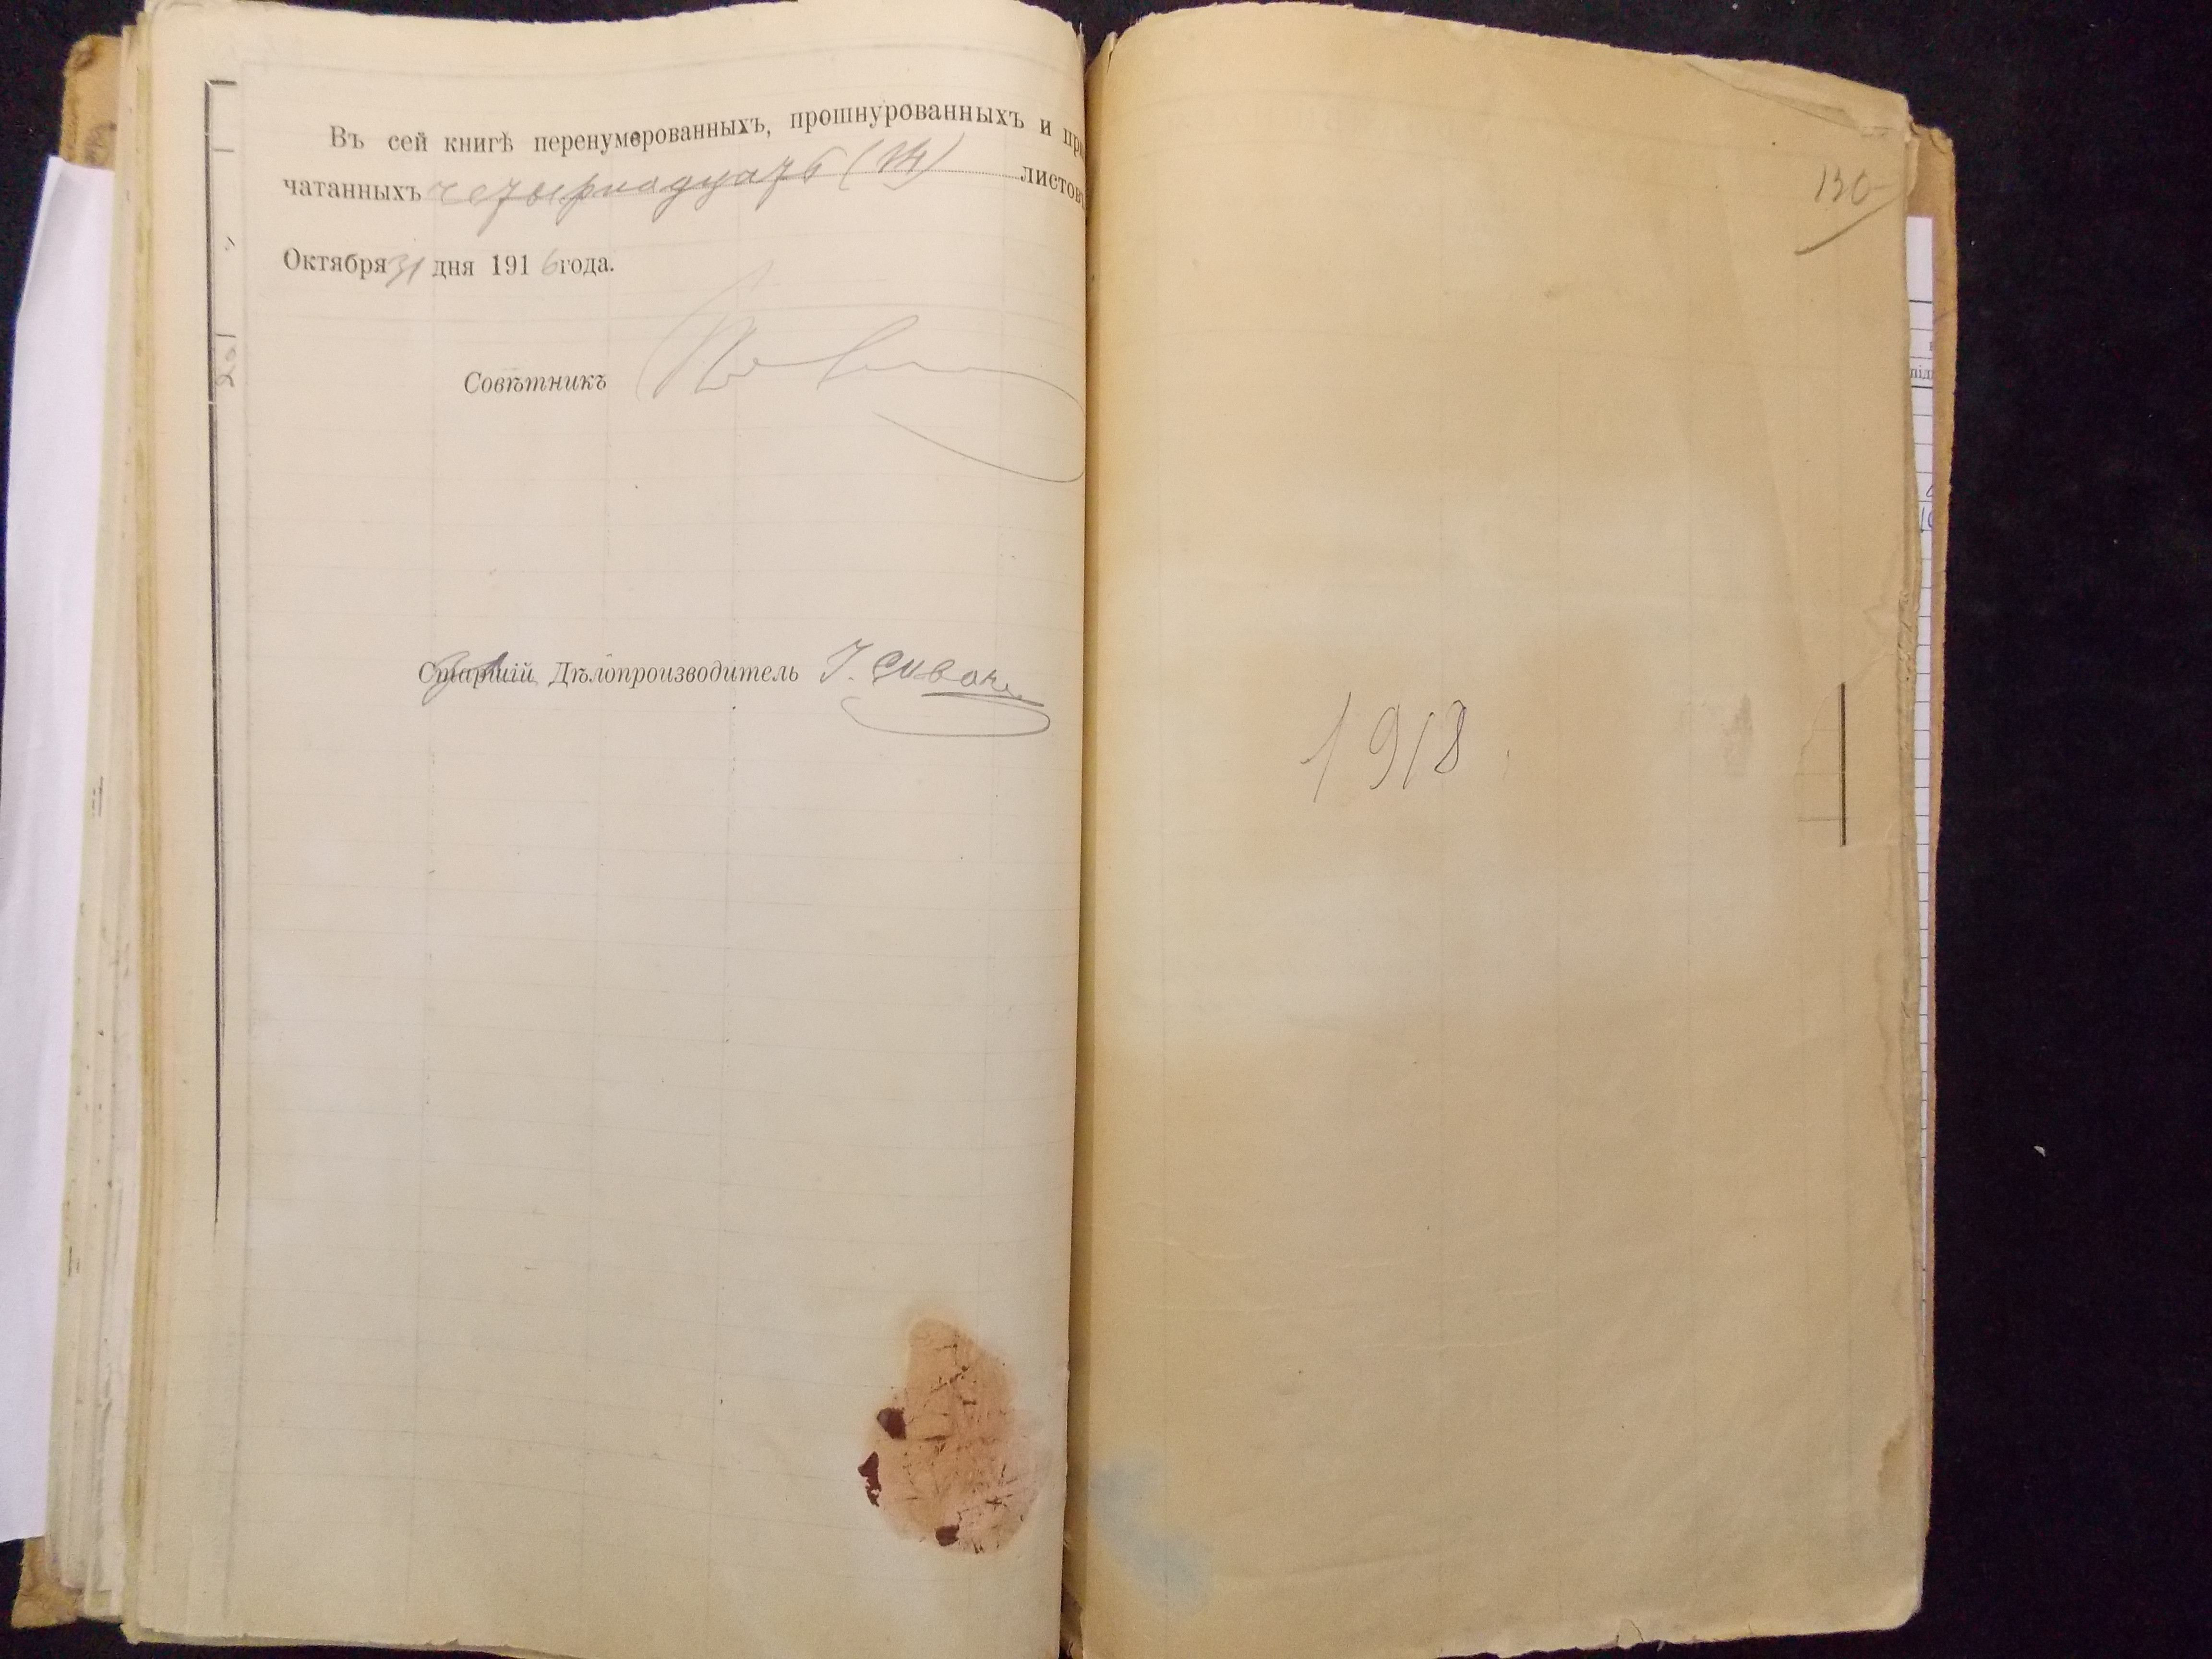 Въ сей книгѣ перенумерованныхъ, прошнурованныхъ и при
чатанныхъ четырнадцать (14) листовъ
Октября 31 дня 1916 года.
Совѣтникъ
Старшій Дѣлопроизводитель
130
1918